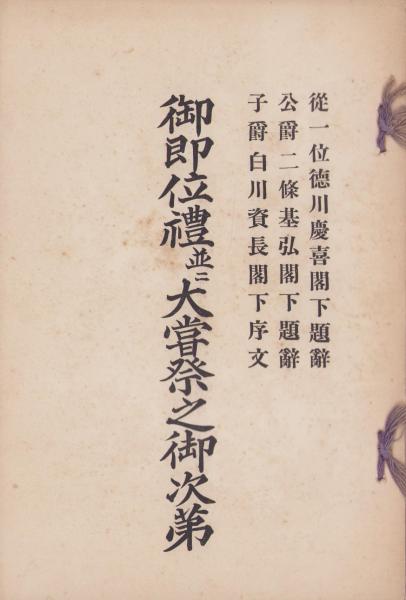 從一位德川慶喜閣下題辭
公爵二條基弘閣下題辭
子爵白川資長閣下序文
御即位禮並ニ大嘗祭之御次第